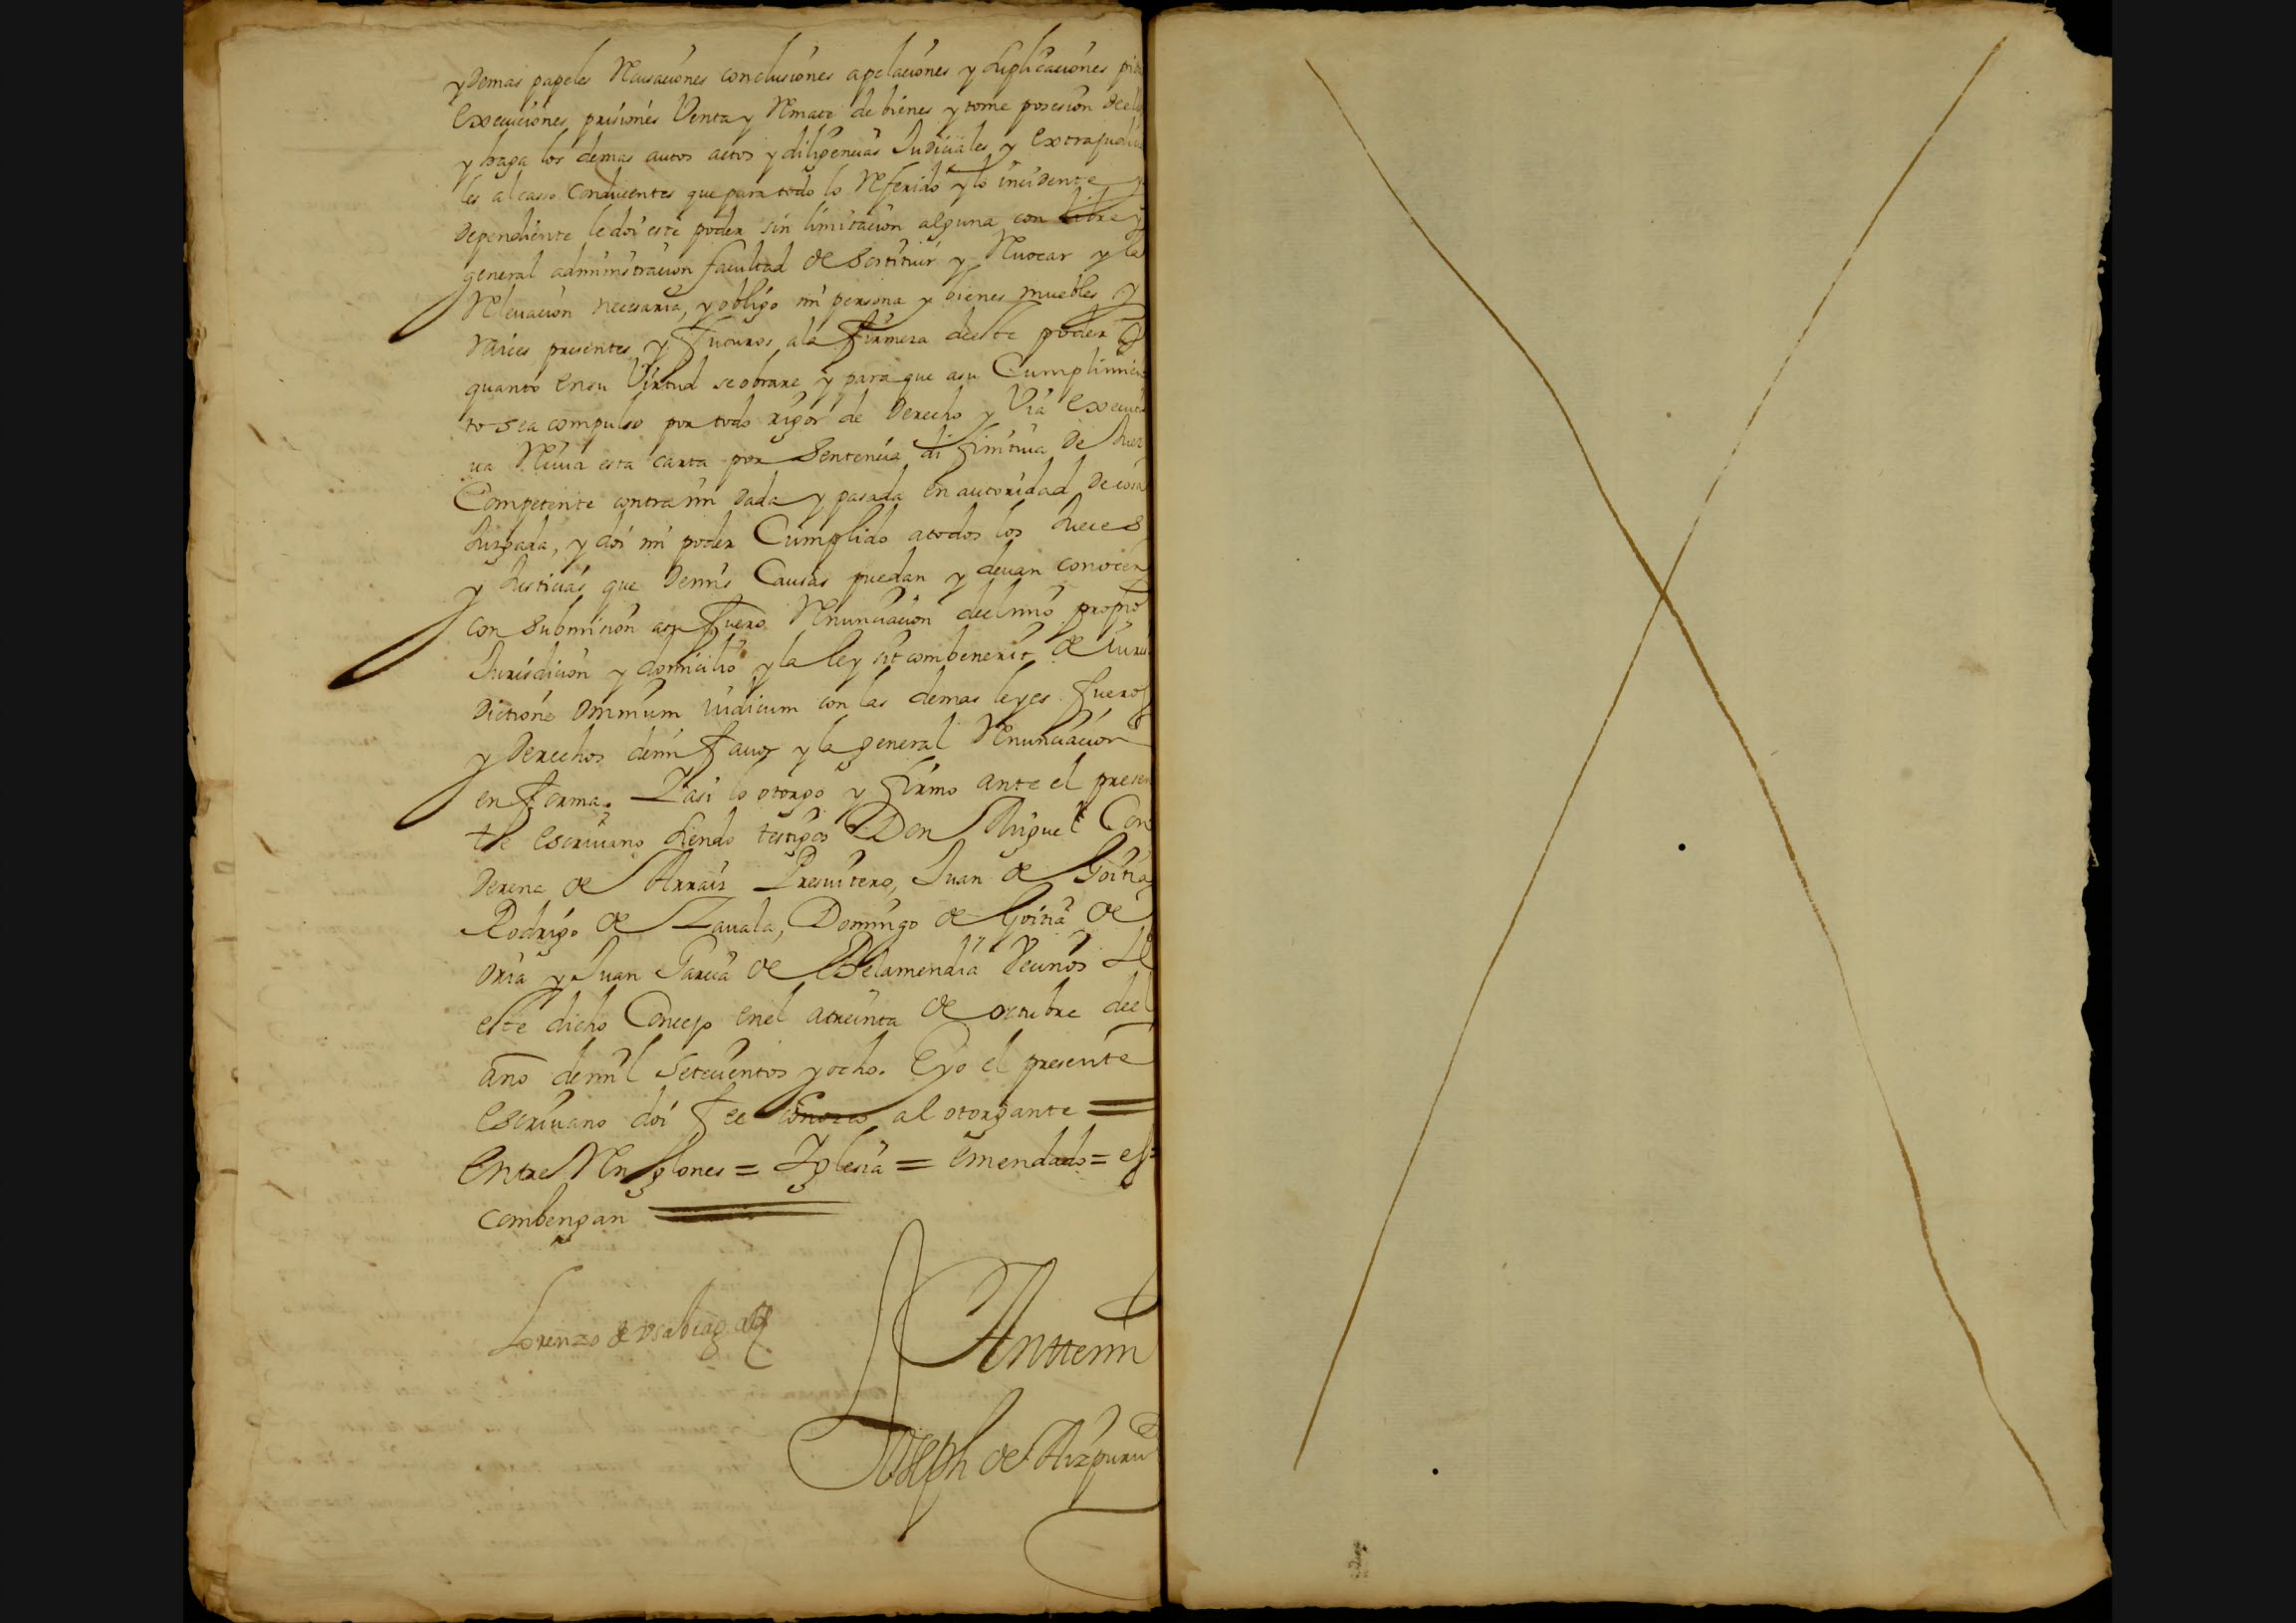 y demas papeles Recusaciones conclusiones apelaciones y suplicaciones pida
Execuciones prisiones Venta y Remate de bienes y tome posesion deel
y haga los demas autos actos y diligencias Judiciales y Extrajudicia
les al caso Conducentes que para todo lo Referido y lo incidente y
dependiente le doi este poder sin limitacion alguna con libre y
general administracion facultad de sostituir y Reuocar y la
Releuacion necesaria, y obligo mi persona y bienes muebles y
Raices presentes y futuros, a la firmeza deeste poder y
quanto en su Virtud se obrare y para que a su Cumplimien
to sea compulso por todo rigor de Derecho y Via executi
ua Reciui esta carta por Sentencia difinitiua de Juez
Competente contra mi dada y pasada en autoridad de cosa
Juzgada, y doi mi poder Cumplido a todos los Jueces
y Justicias que de mis Causas puedan y deuan conocer
con submision a su fuero Renunciacion deel mio propio
Jurisdicion y domicilio y la ley sit combenerit de Juris
dictione omnium iudicum con las demas leyes fueros
y Derechos de mi fauor y la general Renunciacion
en forma. Y asi lo otorgo y firmo ante el presen
te escriuano siendo testigos Don Miguel Con
de Arraiz Presuitero, Juan de Goitia
Rodrigo de Zauala, Domingo de Goitia de
oria y Juan Garcia de Belamendia Vecinos de
este dicho Concejo en el a treinta de octubre deel
año de mil setecientos y ocho. E yo el presente
escriuano doi fee conozco al otorgante =
Entre Renglones = Iglesia = emendado = es=
combengan
Lorenzo de Vsabiaga
Antte mi
Joseph de Aizpuru